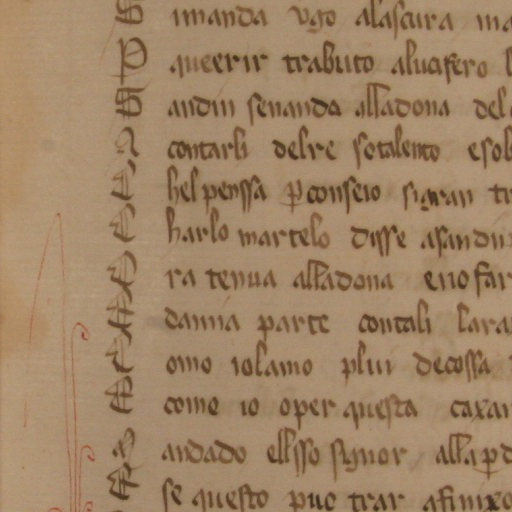 S imanda vgo alascura ma
P queerir trabuto alucifero l
S andin senanda alladona del
A contarli delre sotalento esol
E hel penssa ꝑconseio sigran tr
C harlo martelo disse asandin
O ra tenua alladona eno far
E dannia parte contali lara
C omo iolamo plui decossa
E come io oper questa caxar
A andado ellsso signor alla ꝑd
E se questo puo trar afin